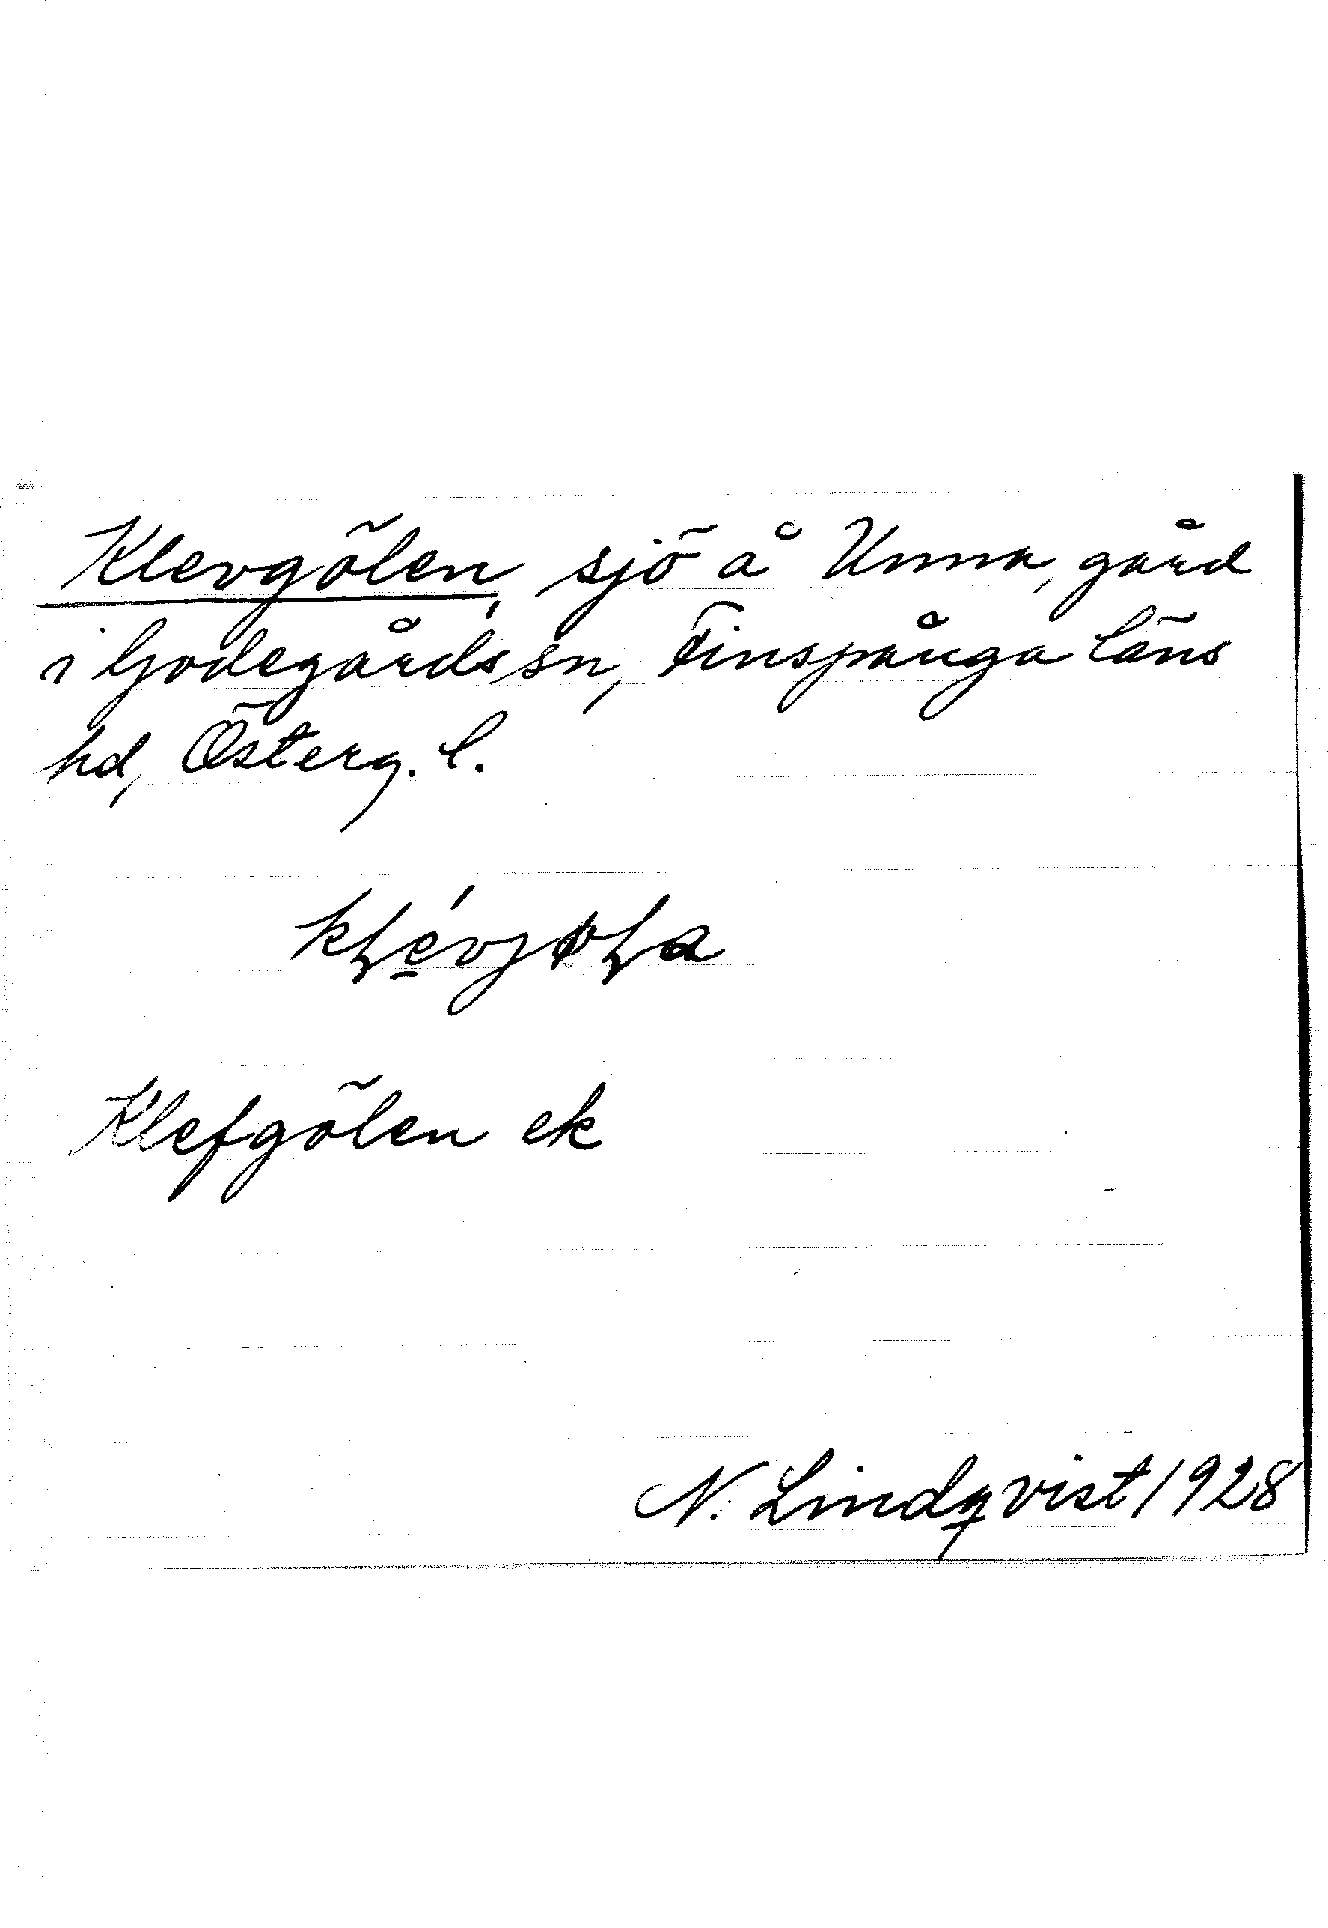 Klevgölen, sjö å Unna, gård
i Godegårds sn, Finspånga läns
hd, Österg. l.
Klefgölen ek
N. Lindqvist 1928